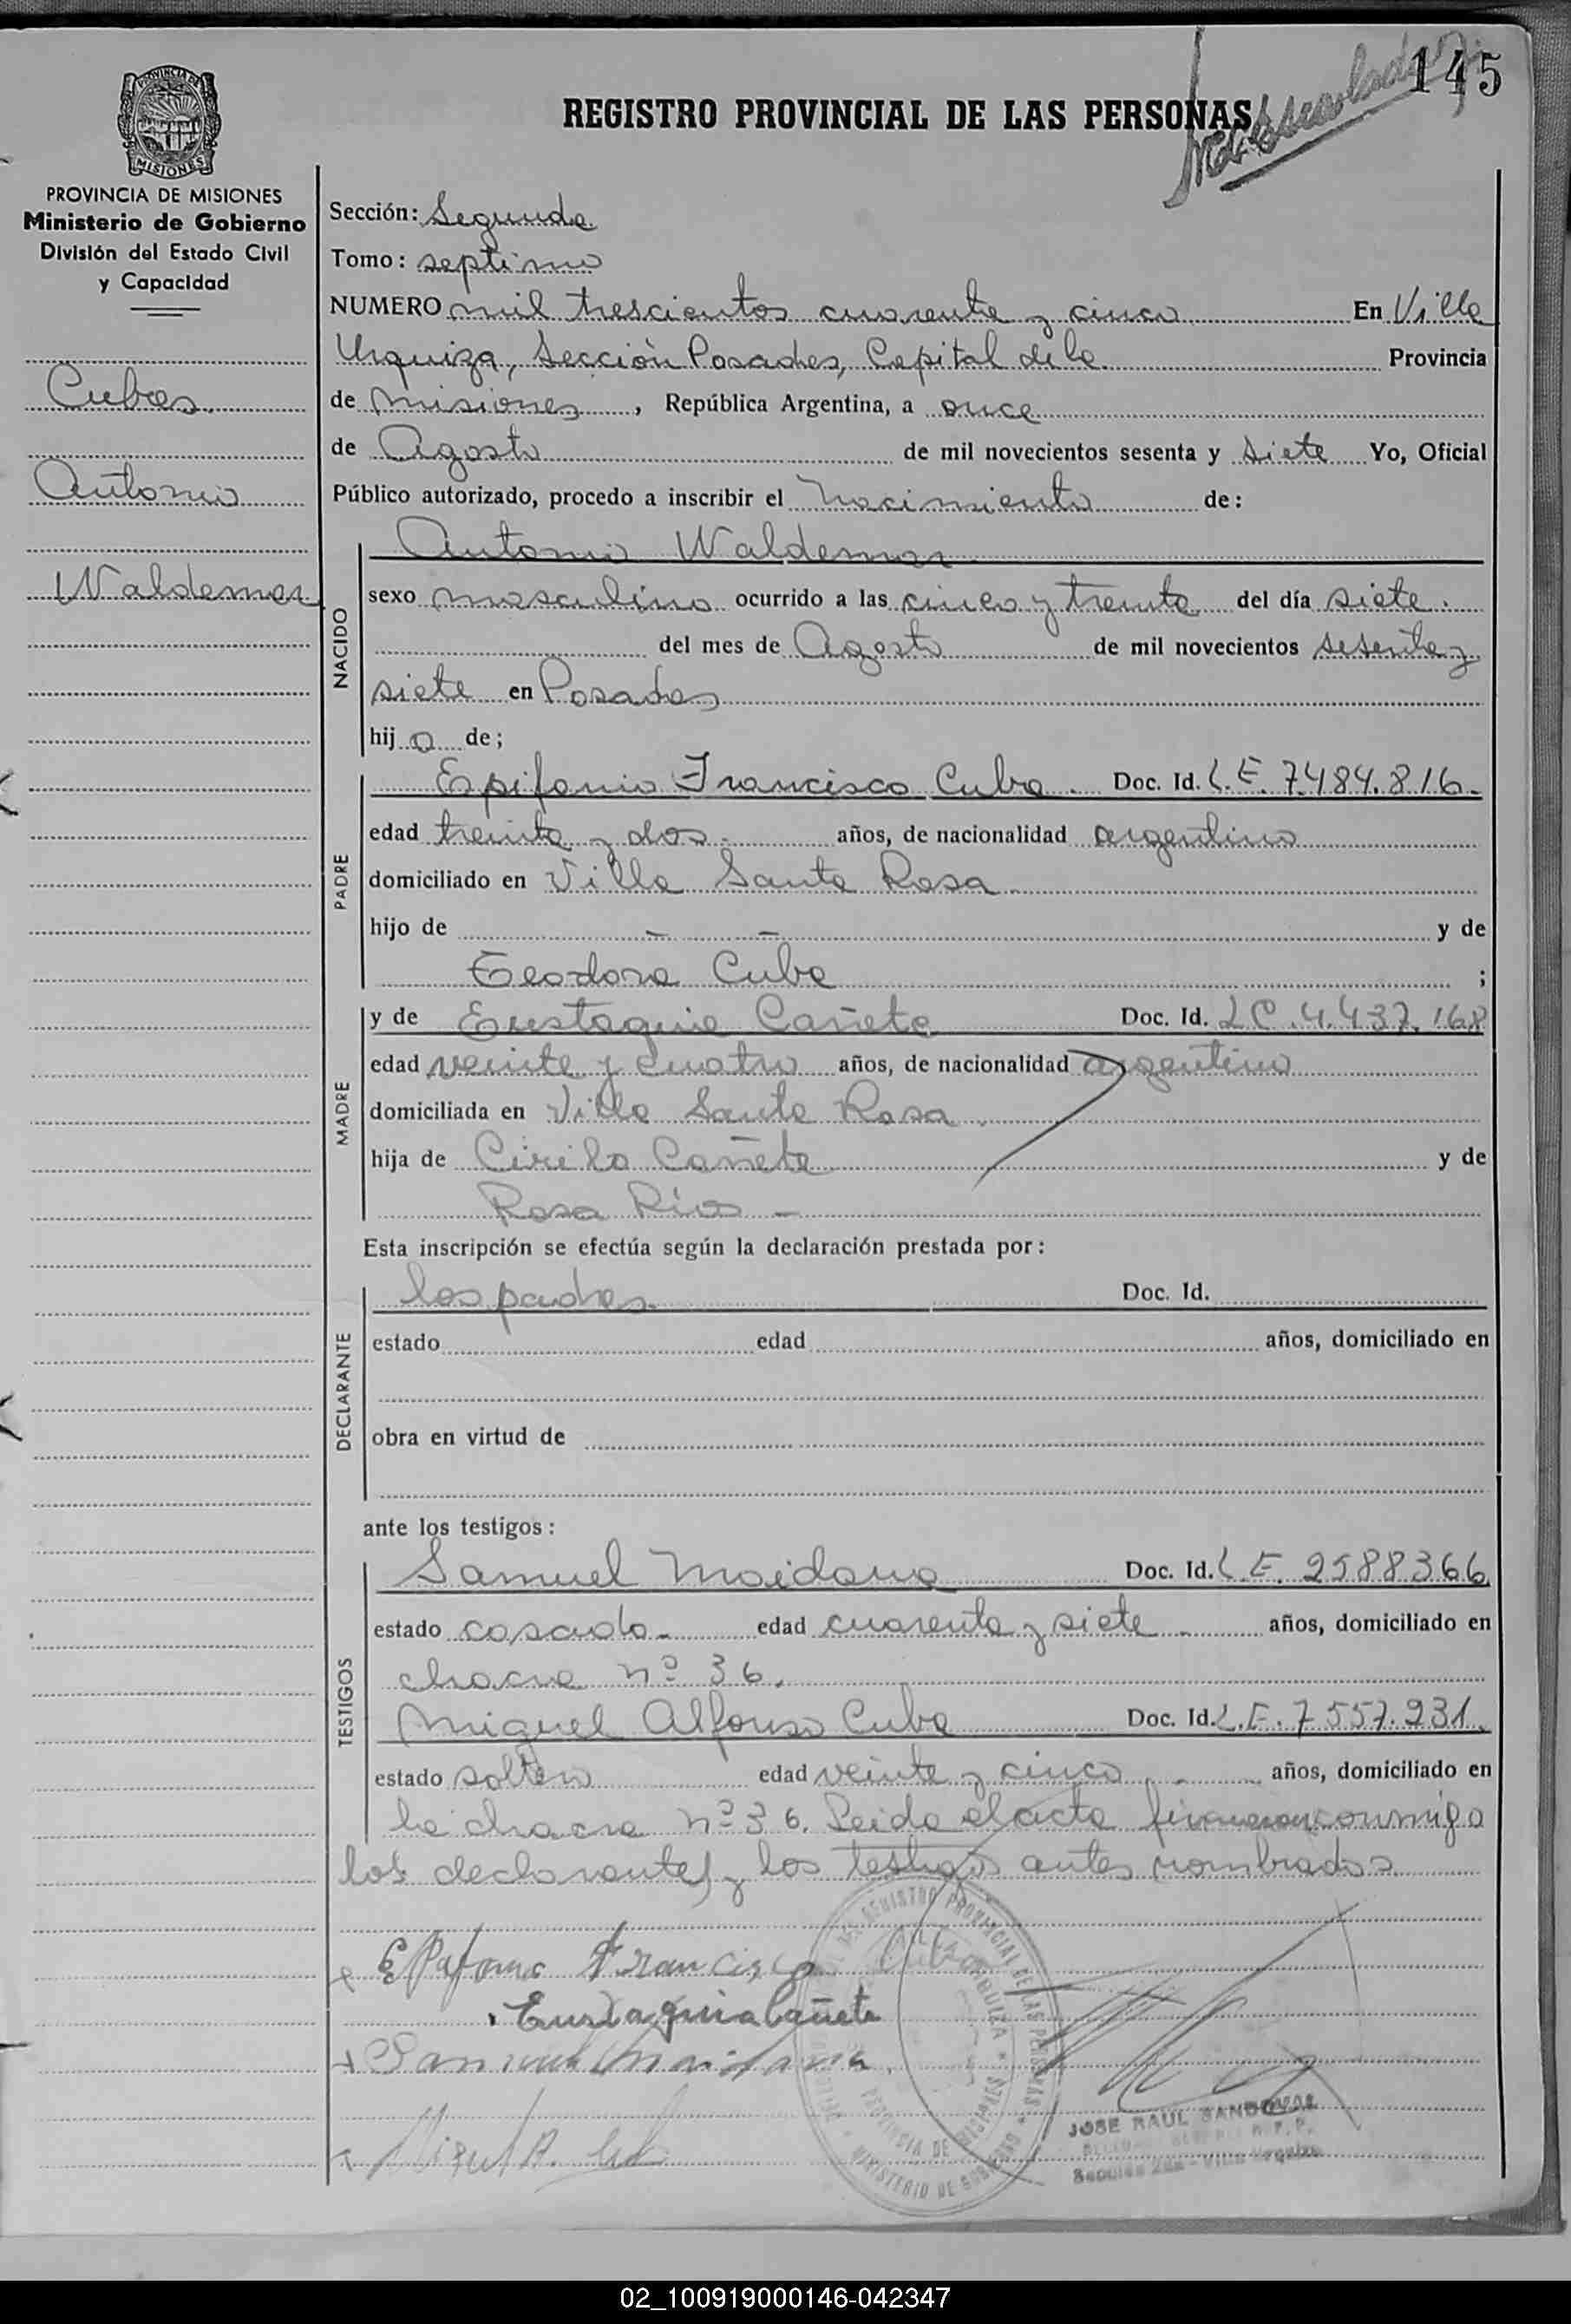 145
REGISTRO PROVINCIAL DE LAS PERSONAS
PROVINCIA DE
MISIONES
PROVINCIA DE MISIONES
Ministerio de Gobierno
División del Estado Civil
y Capacidad
Cubas
Antonio
Waldemar
Sección: Segunda
Tomo: septimo
NUMERO mil trescientos cuarenta y cinco En Villa
Urquiza, Sección Posadas, Capital de la Provincia
de Misiones, República Argentina, a once
de Agosto de mil novecientos sesenta y siete Yo, Oficial
Público autorizado, procedo a inscribir el nacimiento de:
Antonio Waldemar
NACIDO
sexo masculino ocurrido a las cinco y treinta del día siete.
del mes de Agosto de mil novecientos sesenta y
siete en Posadas
hijo de;
PADRE
Epifanio Francisco Cuba. Doc. Id. L.E. 7.484.816.
edad treinta y dos. años, de nacionalidad argentino
domiciliado en Villa Santa Rosa
hijo de — — y de
Teodora Cuba ;
MADRE
y de Eustaquia Cañete Doc. Id. LC.4.437.168
edad veinte y cuatro años, de nacionalidad argentino
domiciliada en Villa Santa Rosa.
hija de Cirilo Cañete y de
Rosa Ríos —
Esta inscripción se efectúa según la declaración prestada por:
DECLARANTE
los padres. Doc. Id.
estado edad años, domiciliado en
obra en virtud de
ante los testigos:
TESTIGOS
Samuel Maidana Doc. Id. L.E. 2588366
estado casado. edad cuarenta y siete. años, domiciliado en
chacra nº 36.
Miguel Alfonso Cuba Doc. Id. L.E. 7557.231.
estado soltero edad veinte y cinco. años, domiciliado en
la chacra nº 36. Leida el acta firmaron conmigo
los declarantes y los testigos antes nombrados
Epifanio Francisco Cuba
Eustaquia Cañete
Samuel Maidana
Miguel A. Cuba
REGISTRO PROVINCIAL DE LAS PERSONAS
PROVINCIA DE MISIONES
MINISTERIO DE GOBIERNO
JOSE RAUL SANDOVAL
Sección 2da - Villa Urquiza
02_100919000146-042347